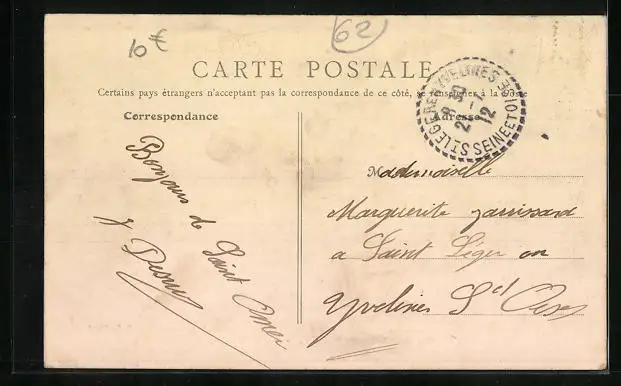 10 €
62
CARTE POSTALE
Certains pays étrangers n'acceptant pas la correspondance de ce côté, se renseigner à la Poste
Correspondance
Bonjour de Saint Omer
Adresse
Mademoiselle
Marguerite
a Saint Léger en
Yvelines S et Oise
ST LEGER EN YVELINES
SEINE ET OISE
8 30
2 - 7
12